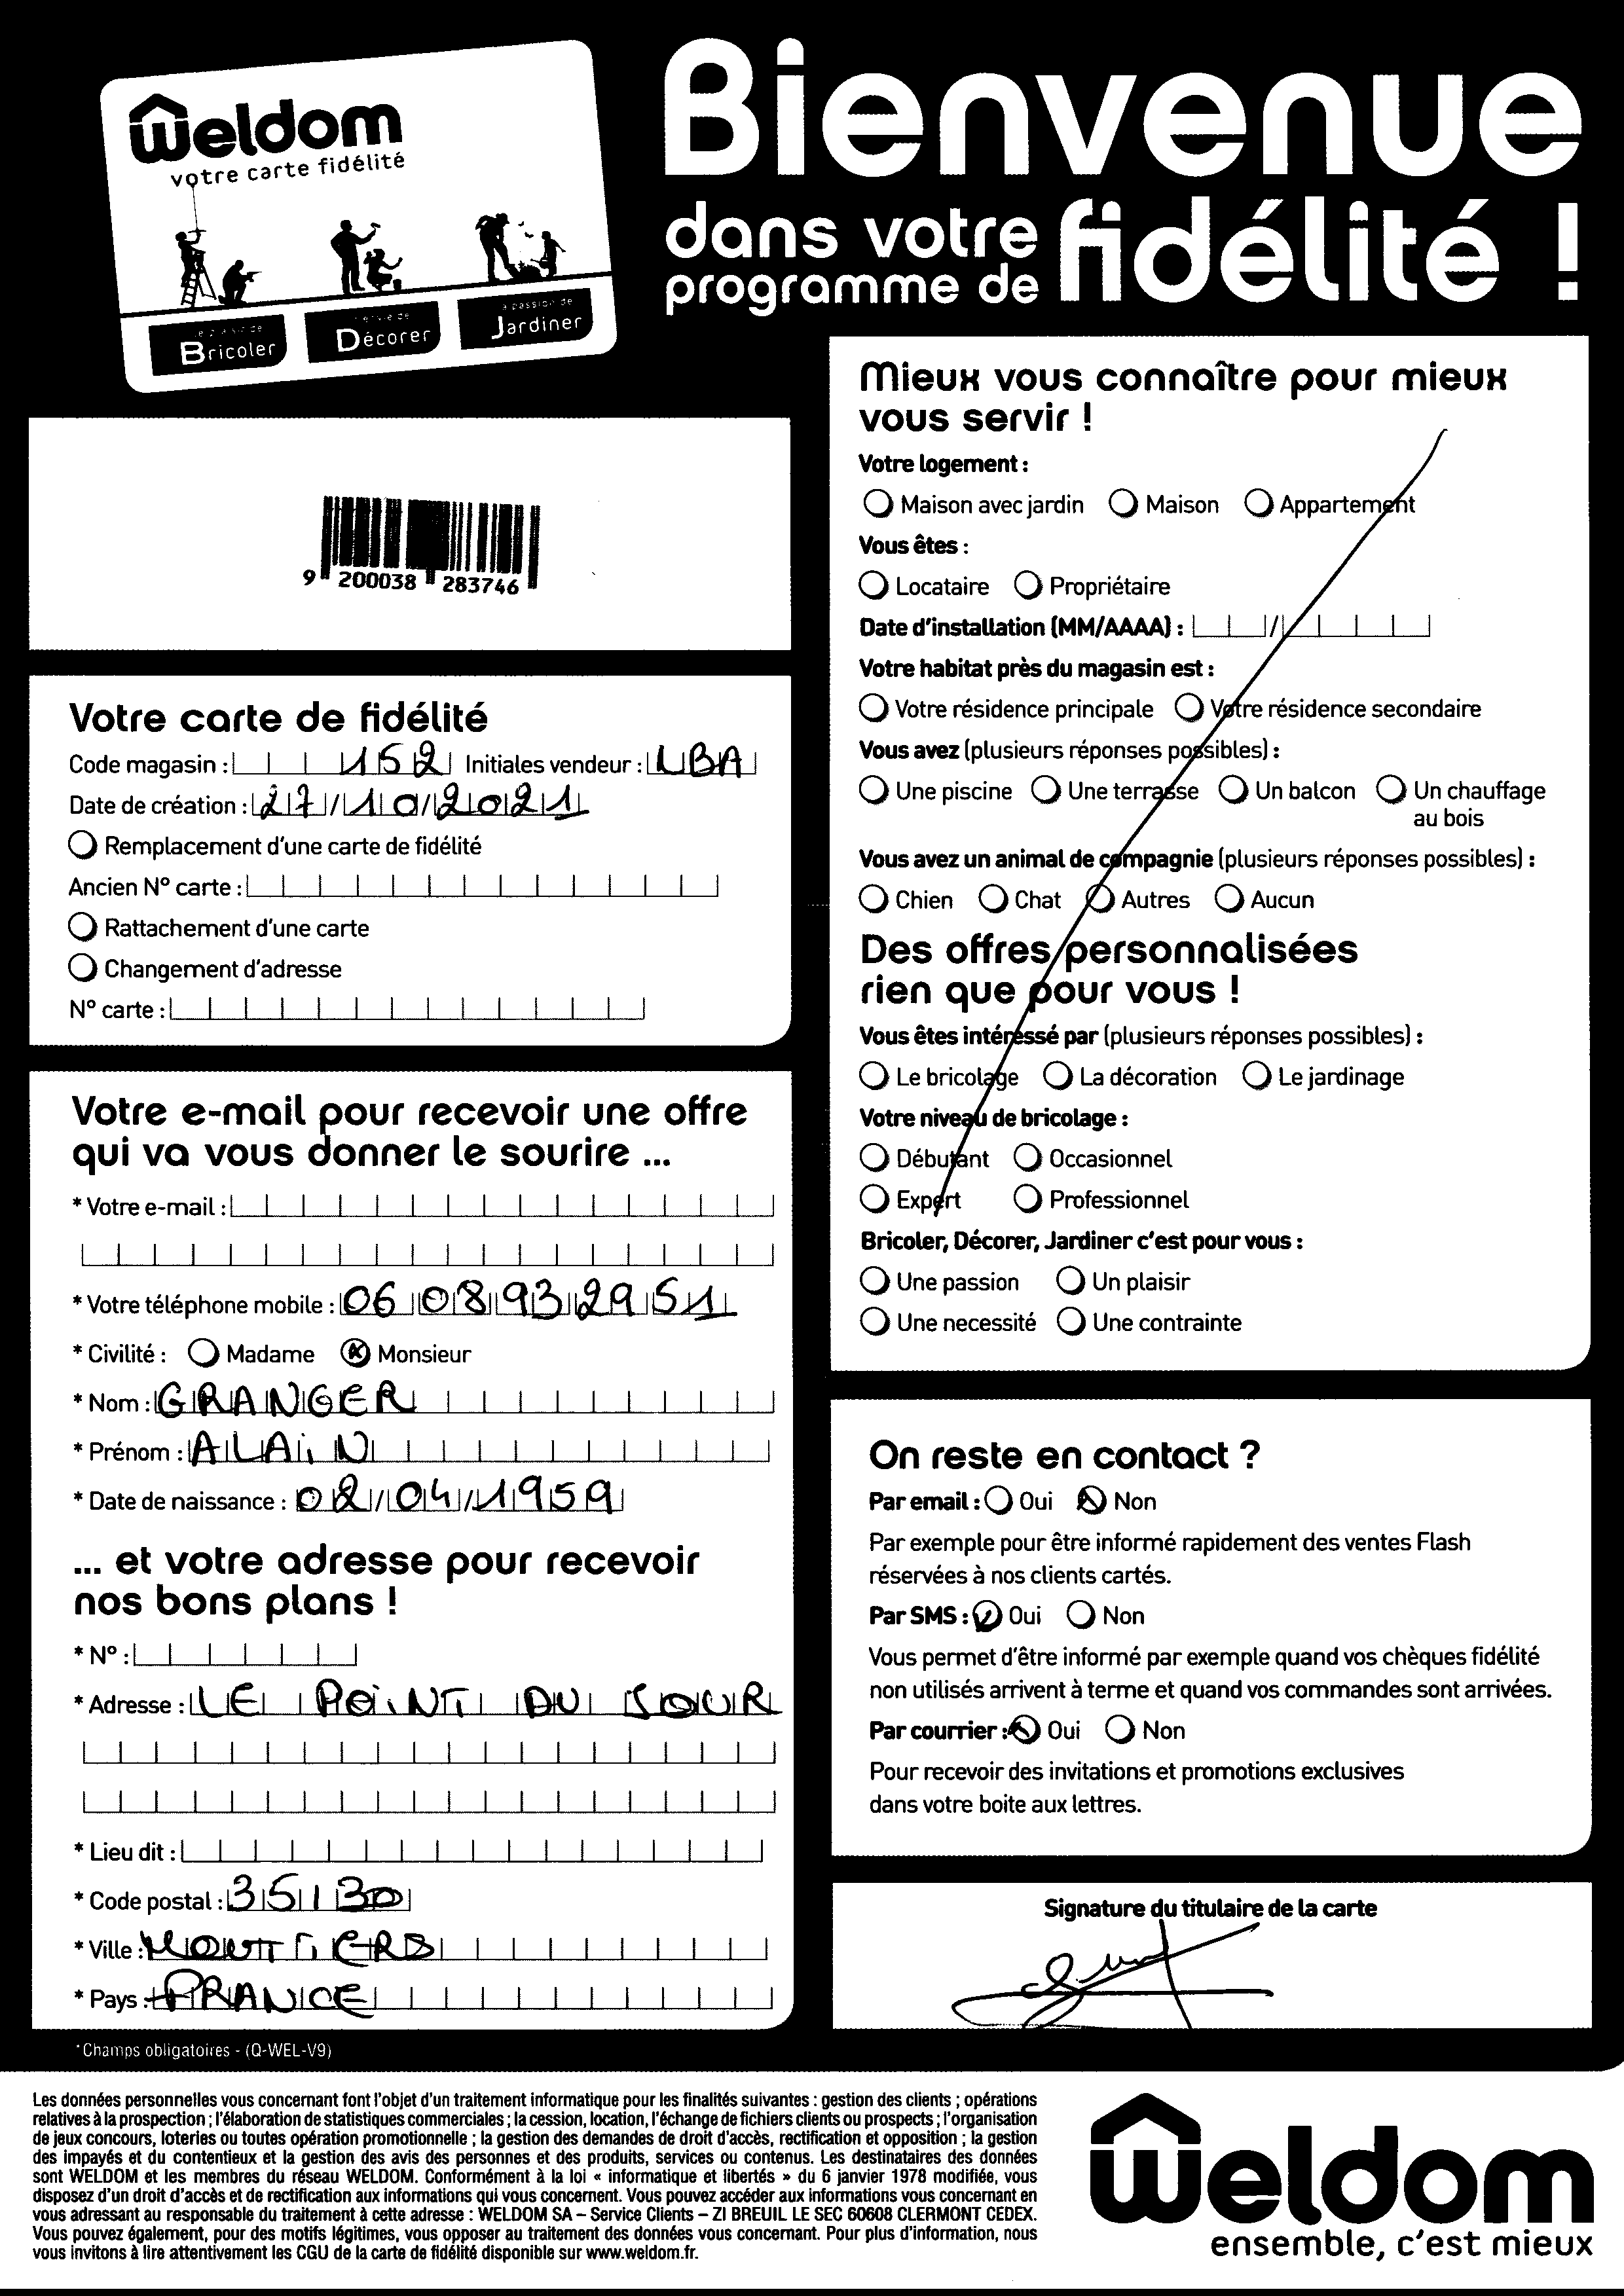 Weldom
votre carte fidélité
Bricoler
Décorer
Jardiner
Bienvenue
dans votre
programme de fidélité !
9 200038 283746
Votre carte de fidélité
Code magasin : 152 Initiales vendeur : LBA
Date de création : 27/10/2021
Remplacement d'une carte de fidélité
Ancien N° carte :
Rattachement d'une carte
Changement d'adresse
N° carte :
Votre e-mail pour recevoir une offre
qui va vous donner le sourire ...
* Votre e-mail :
* Votre téléphone mobile : 06 08 93 29 51
* Civilité : Madame Monsieur
* Nom : GRANGER
* Prénom : ALAiN
* Date de naissance : 02/04/1959
... et votre adresse pour recevoir
nos bons plans !
* N° :
* Adresse : LE POiNT DU JOUR
* Lieu dit :
* Code postal : 35130
* Ville : MOUTiERS
* Pays : FRANCE
*Champs obligatoires - (Q-WEL-V9)
Mieux vous connaître pour mieux
vous servir !
Votre logement :
Maison avec jardin Maison Appartement
Vous êtes :
Locataire Propriétaire
Date d'installation (MM/AAAA) : /
Votre habitat près du magasin est :
Votre résidence principale Votre résidence secondaire
Vous avez (plusieurs réponses possibles) :
Une piscine Une terrasse Un balcon Un chauffage
au bois
Vous avez un animal de compagnie (plusieurs réponses possibles) :
Chien Chat Autres Aucun
Des offres personnalisées
rien que pour vous !
Vous êtes intéressé par (plusieurs réponses possibles) :
Le bricolage La décoration Le jardinage
Votre niveau de bricolage :
Débutant Occasionnel
Expert Professionnel
Bricoler, Décorer, Jardiner c'est pour vous :
Une passion Un plaisir
Une necessité Une contrainte
On reste en contact ?
Par email : Oui Non
Par exemple pour être informé rapidement des ventes Flash
réservées à nos clients cartés.
Par SMS : Oui Non
Vous permet d'être informé par exemple quand vos chèques fidélité
non utilisés arrivent à terme et quand vos commandes sont arrivées.
Par courrier : Oui Non
Pour recevoir des invitations et promotions exclusives
dans votre boite aux lettres.
Signature du titulaire de la carte
Les données personnelles vous concernant font l'objet d'un traitement informatique pour les finalités suivantes : gestion des clients ; opérations
relatives à la prospection ; l'élaboration de statistiques commerciales ; la cession, location, l'échange de fichiers clients ou prospects ; l'organisation
de jeux concours, loteries ou toutes opération promotionnelle ; la gestion des demandes de droit d'accès, rectification et opposition ; la gestion
des impayés et du contentieux et la gestion des avis des personnes et des produits, services ou contenus. Les destinataires des données
sont WELDOM et les membres du réseau WELDOM. Conformément à la loi « informatique et libertés » du 6 janvier 1978 modifiée, vous
disposez d'un droit d'accès et de rectification aux informations qui vous concernent. Vous pouvez accéder aux informations vous concernant en
vous adressant au responsable du traitement à cette adresse : WELDOM SA – Service Clients – ZI BREUIL LE SEC 60608 CLERMONT CEDEX.
Vous pouvez également, pour des motifs légitimes, vous opposer au traitement des données vous concernant. Pour plus d'information, nous
vous invitons à lire attentivement les CGU de la carte de fidélité disponible sur www.weldom.fr.
Weldom
ensemble, c'est mieux